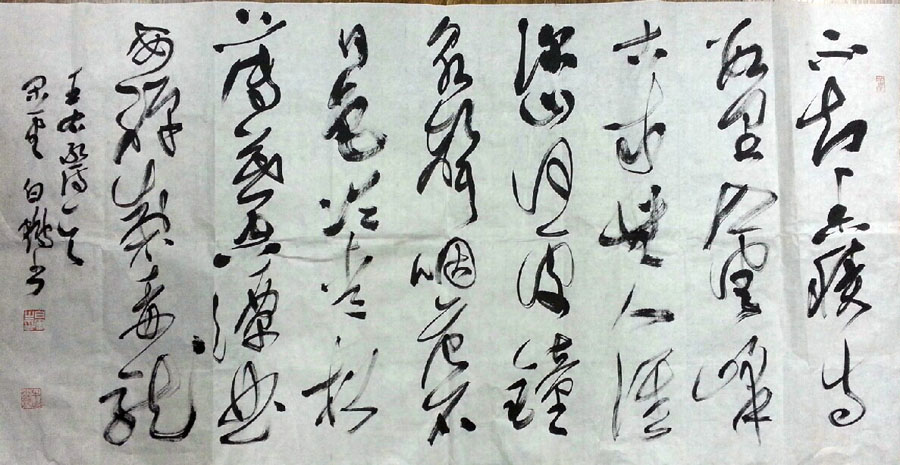 不知香積寺
數里入雲峰
古木無人徑
深山何處鐘
泉聲咽危石
日色冷青松
薄暮空潭曲
安禪制毒龍
王右丞詩一首
白鶴書